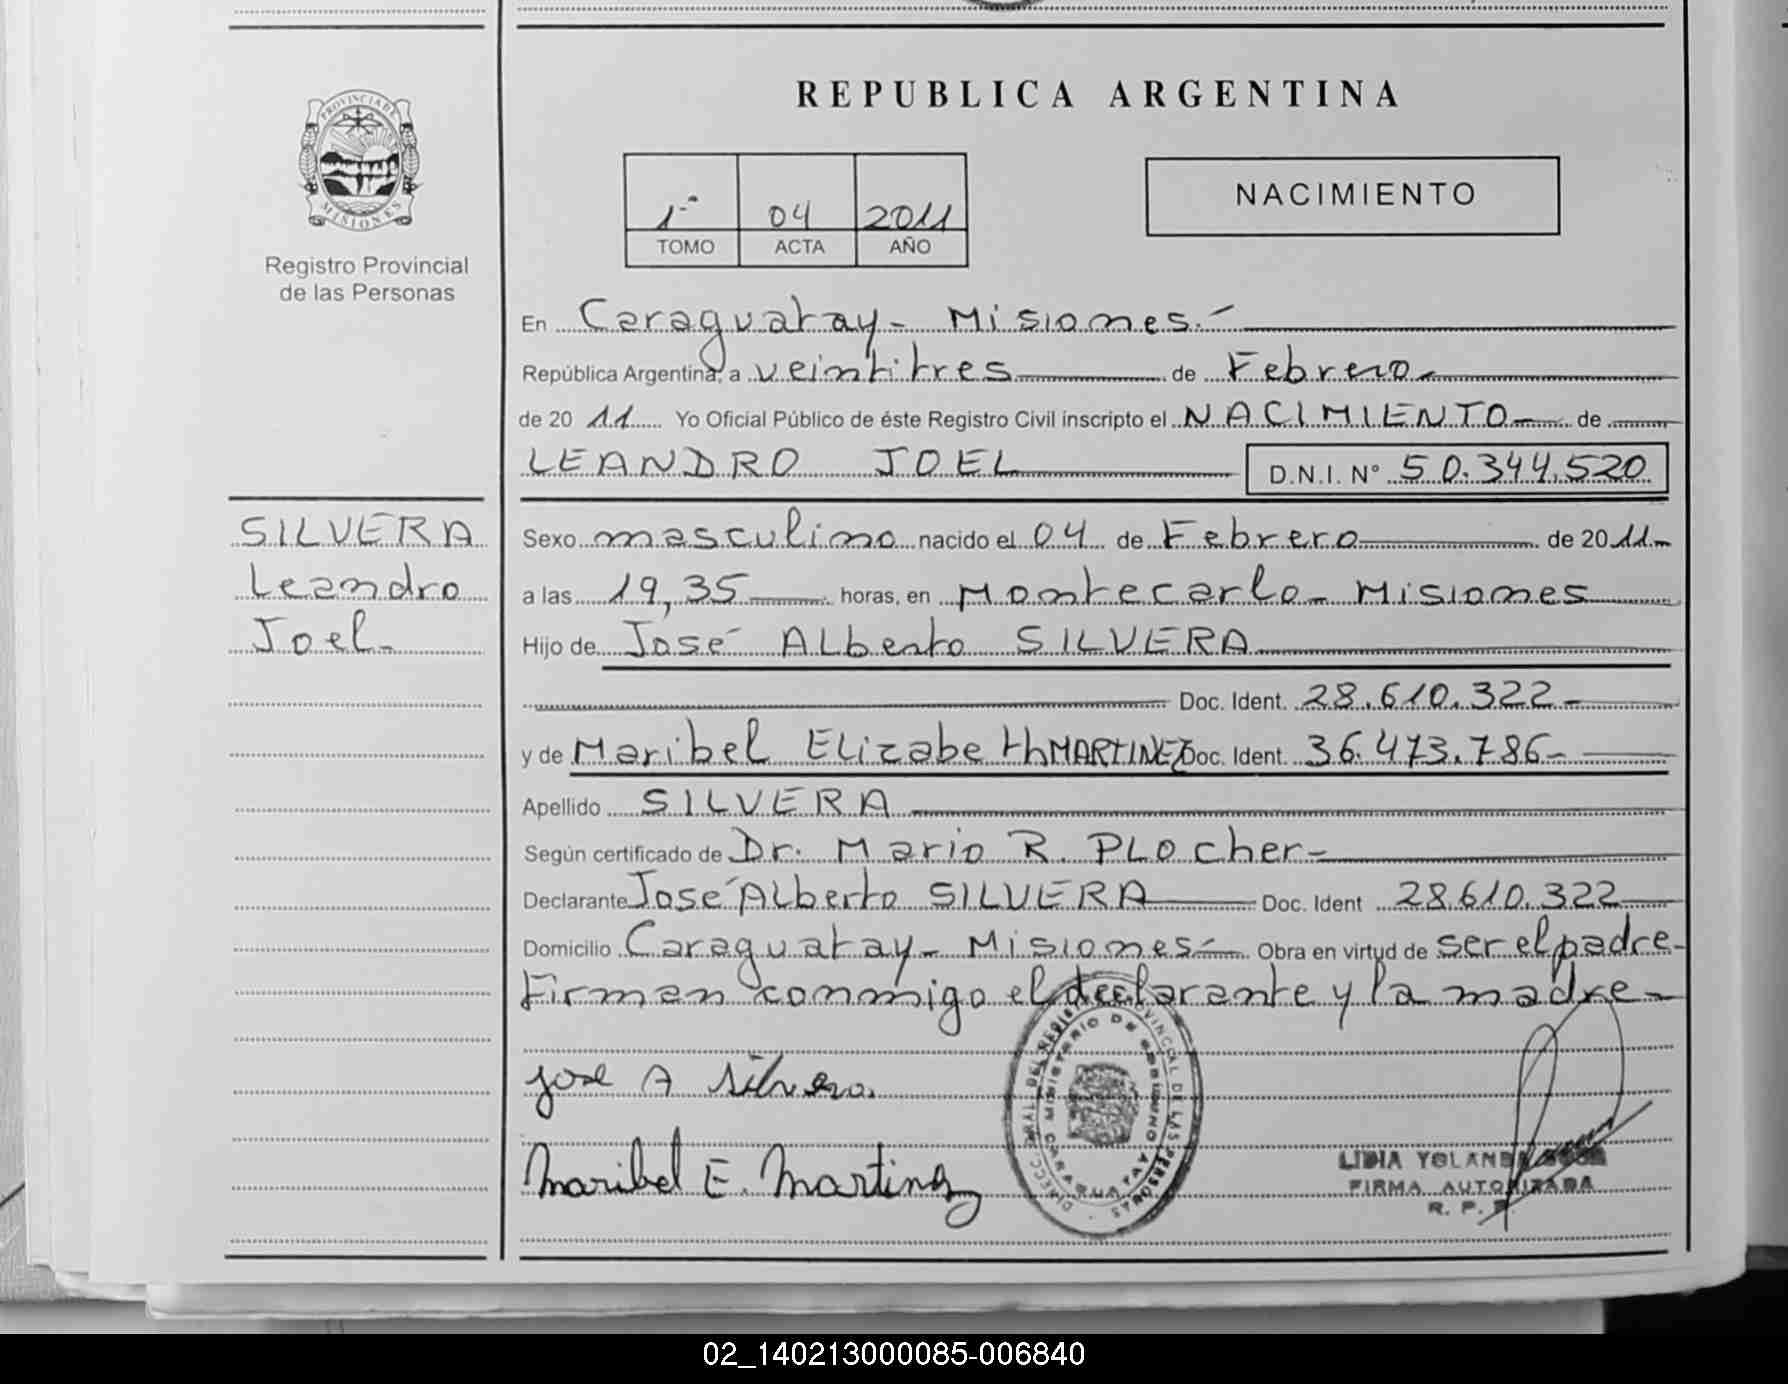 REPUBLICA ARGENTINA
PROVINCIA DE
MISIONES
Registro Provincial
de las Personas
1º 04 2011
TOMO ACTA AÑO
NACIMIENTO
En Caraguatay - Misiones.-
República Argentina, a veintitres de Febrero-
de 20 11 Yo Oficial Público de éste Registro Civil inscripto el NACIMIENTO de
LEANDRO JOEL D.N.I. Nº 50.344.520
SILVERA
Leandro
Joel-
Sexo masculino nacido el 04 de Febrero de 20 11-
a las 19,35 horas, en Montecarlo- Misiones
Hijo de José ALberto SILVERA
Doc. Ident. 28.610.322-
y de Maribel Elizabeth MARTINEZ Doc. Ident. 36.473.786-
Apellido SILVERA
Según certificado de Dr. Mario R. PLOcher-
Declarante José ALberto SILVERA Doc. Ident 28.610.322
Domicilio Caraguatay - Misiones- Obra en virtud de ser el padre-
Firman conmigo el declarante y la madre-
José A Silvera.
Maribel E. Martinez
MINISTERIO DE GOBIERNO
CARAGUATAY
LIDIA YOLANDA
FIRMA AUTORIZADA
R. P. P.
02_140213000085-006840